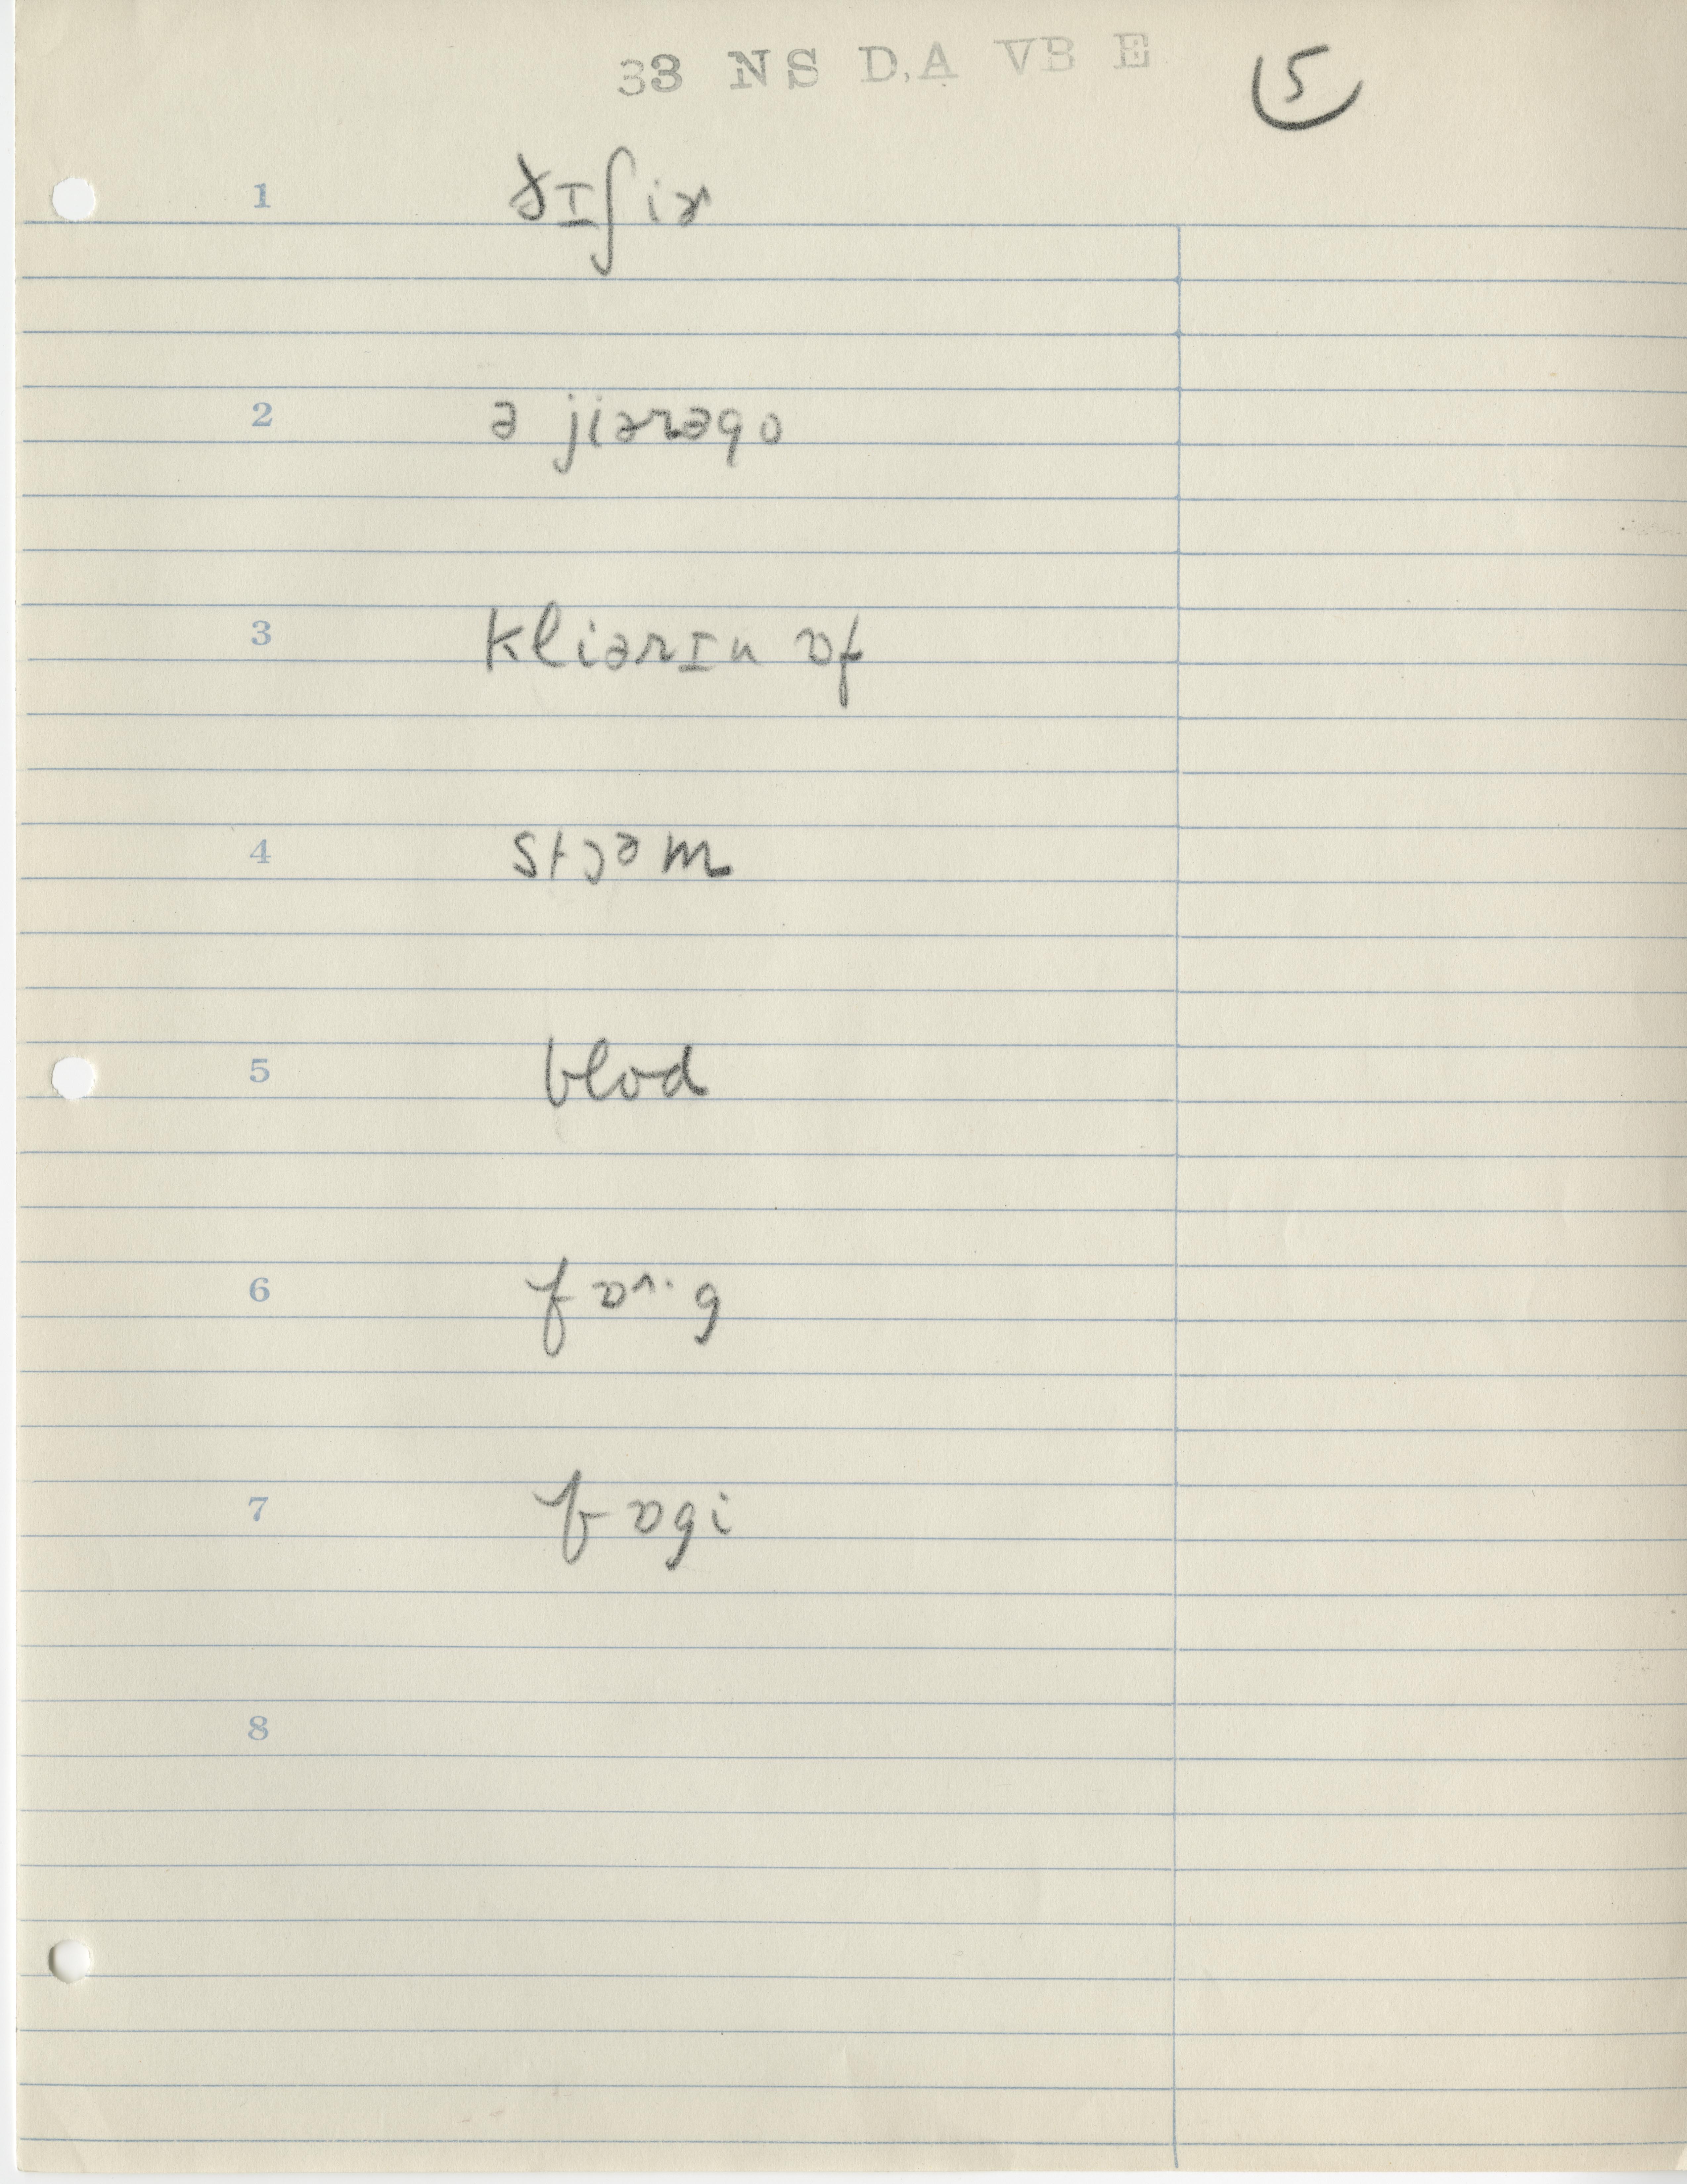 33 NS D.A VB E 5
1 ðɪʃiɚ
2 ə jiərəgo
3 kliərɪn ɒf
4 stɔəm
5 blɒd
6 fɒˑg
7 fɒgi
8